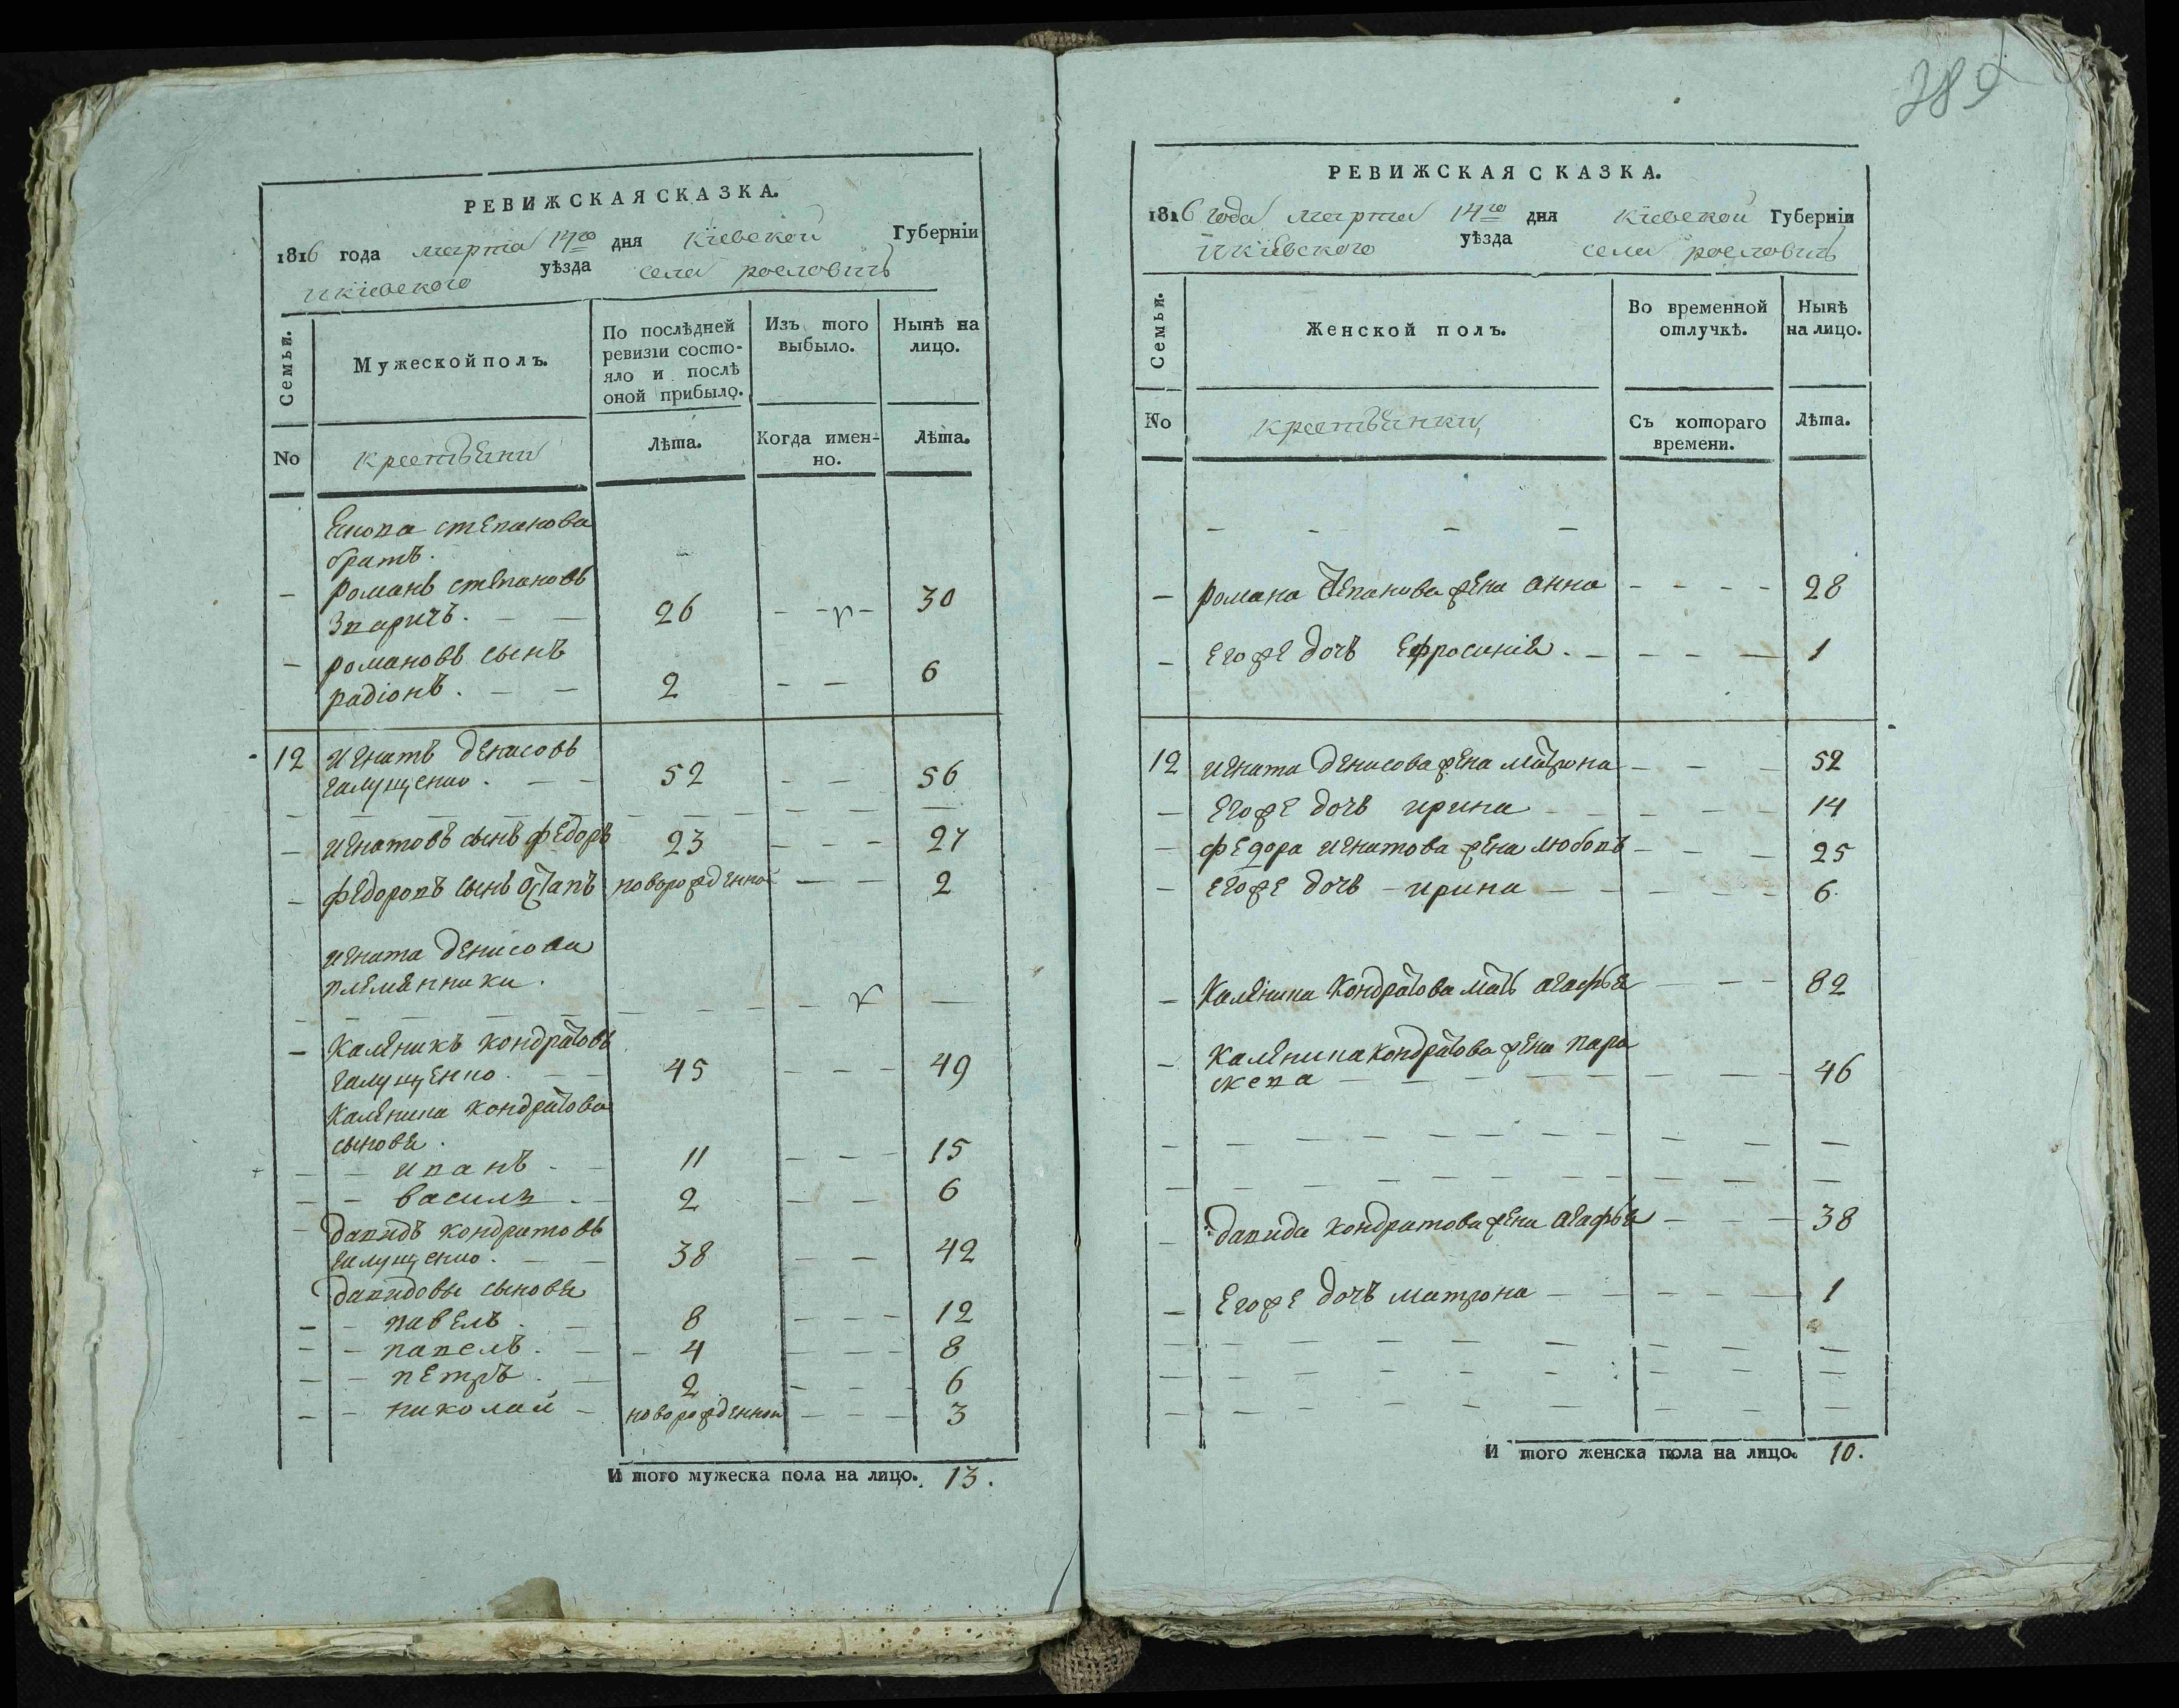 РЕВИЖСКАЯ СКАЗКА.
1816 года марта 14го дня Кіевской Губерніи
И Кіевского уѣзда села рословичъ
Семьи.
Мужеской полъ.
По послѣдней ревизіи состояло и послѣ оной прибыло.
Изъ того выбыло.
Нынѣ на лицо.
No
крестьяни
Лѣта.
Когда именно.
Лѣта.
степанова
братъ.
– романъ степановъ
26 – – – 30
– романовъ сынъ
радіонъ. – – 2 – – 6
12 игнатъ денисовъ
галущенко. – – 52 – – 56
– игнатовъ сынъ федоръ 23 – – – 27
– федоровъ сынъ остапъ новорожденной – – 2
игната денисова
племянники.
– калѣникъ кондратовъ
галущенко. – – 45 – – – 49
калѣника кондратова
сыновя.
– – иванъ – – 11 – – – 15
– – василь – – 2 – – 6
– давидъ кондратовъ
галущенко. – – 38 – – 42
давидовы сыновя
– – павелъ. – 8 – – – 12
– – павелъ. – – 4 – – – 8
– – петръ. – 2 – – – 6
– – николай – новорожденной – – – 3
И того мужеска пола на лицо. 13.
389
РЕВИЖСКАЯ СКАЗКА.
1816 года марта 14го дня Кіевской Губерніи
И Кіевского уѣзда села рословичъ
Семьи.
Женской полъ.
Во временной отлучкѣ.
Нынѣ на лицо.
No
крестьянки,
Съ котораго времени.
Лѣта.
– – – –
– романа степанова жена анна – – – – 28
– егоже дочъ Ефросинія. – – – – 1
12 игната денисова жена матрона – – – 52
– егоже дочъ ирина – – – – 14
– федора игнатова жена любовъ – – – 25
– егоже дочъ – ирина – – – – 6.
– калѣника кондратова мать агафья – – – 82
– калѣника кондратова жена пара
скева – – – – – – – – 46
– давида кондратова жена агафья – – – 38
– егоже дочъ матрона – – – – – 1
И того женска пола на лицо. 10.